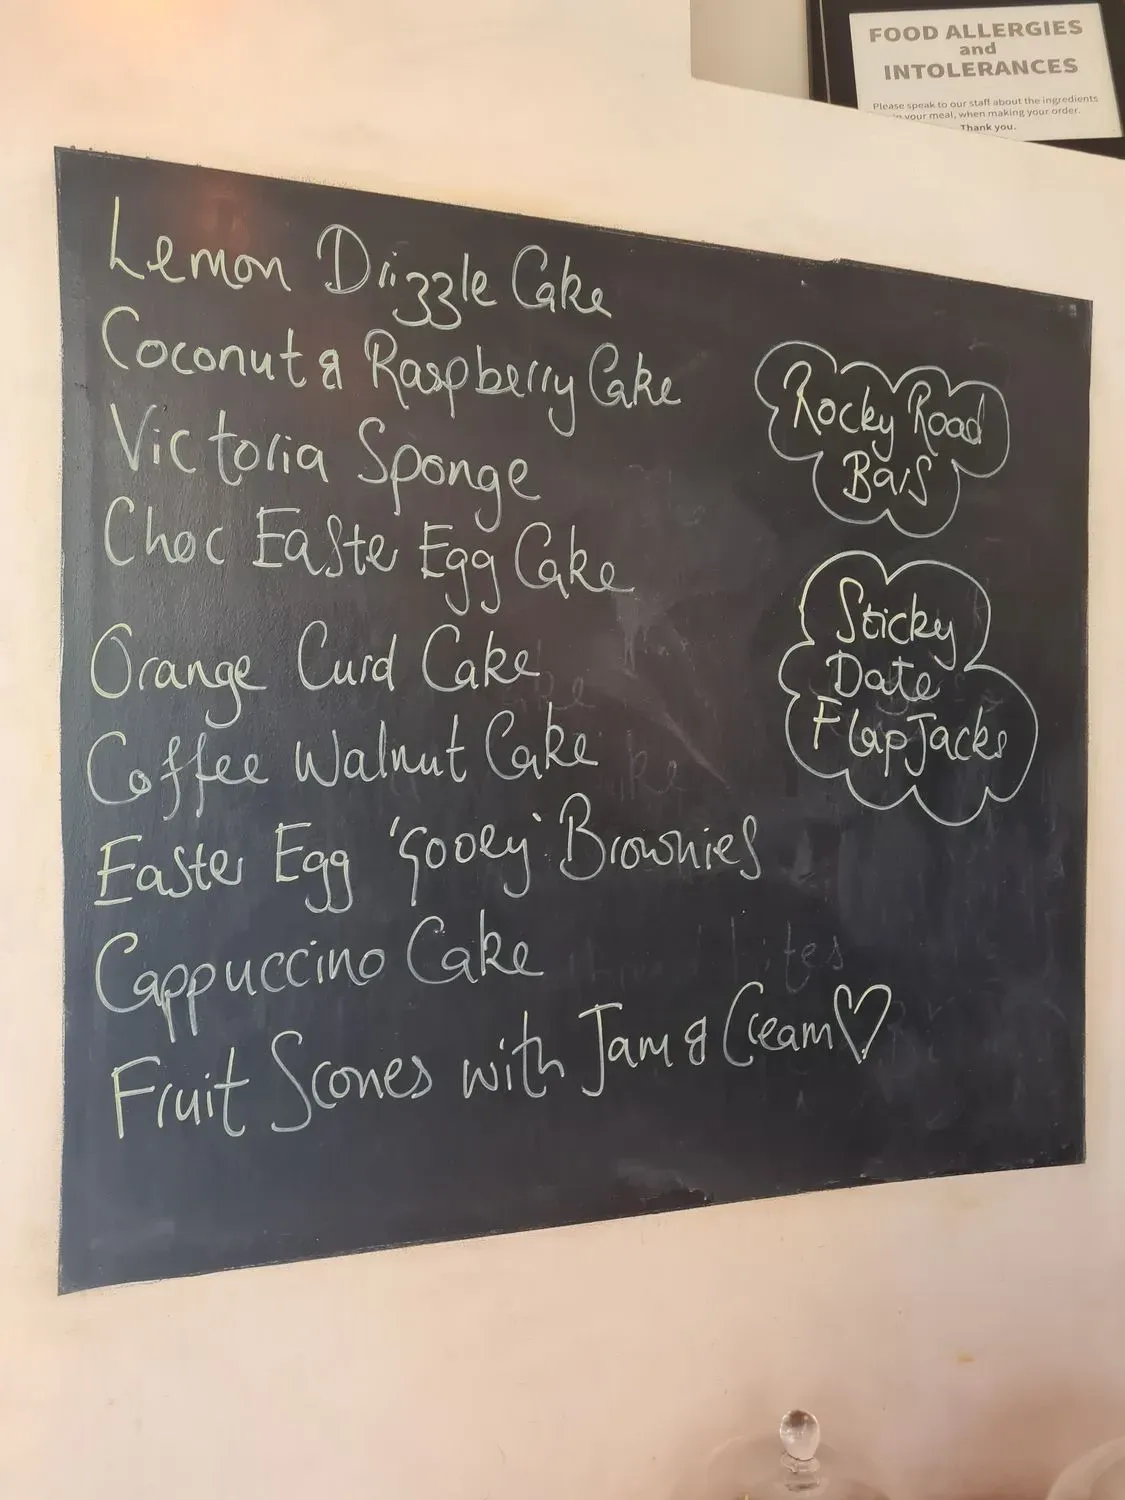 FOOD ALLERGIES
and
INTOLERANCES
Please speak to our staff about the ingredients
your meal, when making your order.
Thank you.
Lemon Drizzle Cake
Coconut & Raspberry Cake
Victoria Sponge
Choc Easter Egg Cake
Orange Curd Cake
Coffee Walnut Cake
Easter Egg 'gooey' Brownies
Cappuccino Cake
Fruit Scones with Jam & Cream♡
Rocky Road
Bars
Sticky
Date
FlapJacks